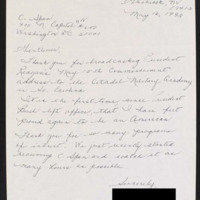 C-Span
400 N. Capitol St NW
Washington DC 20001
Gentlemen:
Thank you for broadcasting President
Reagan's May 15th Commencement
address to the Citadel Military Academy
in So. Carolina
for the first time, since President
left office, that I have felt
proud again to be an American
Thank you for so many programs
of interest. We just recently started
receiving C-Span and watch at as
many hours as possible
Sincerely,